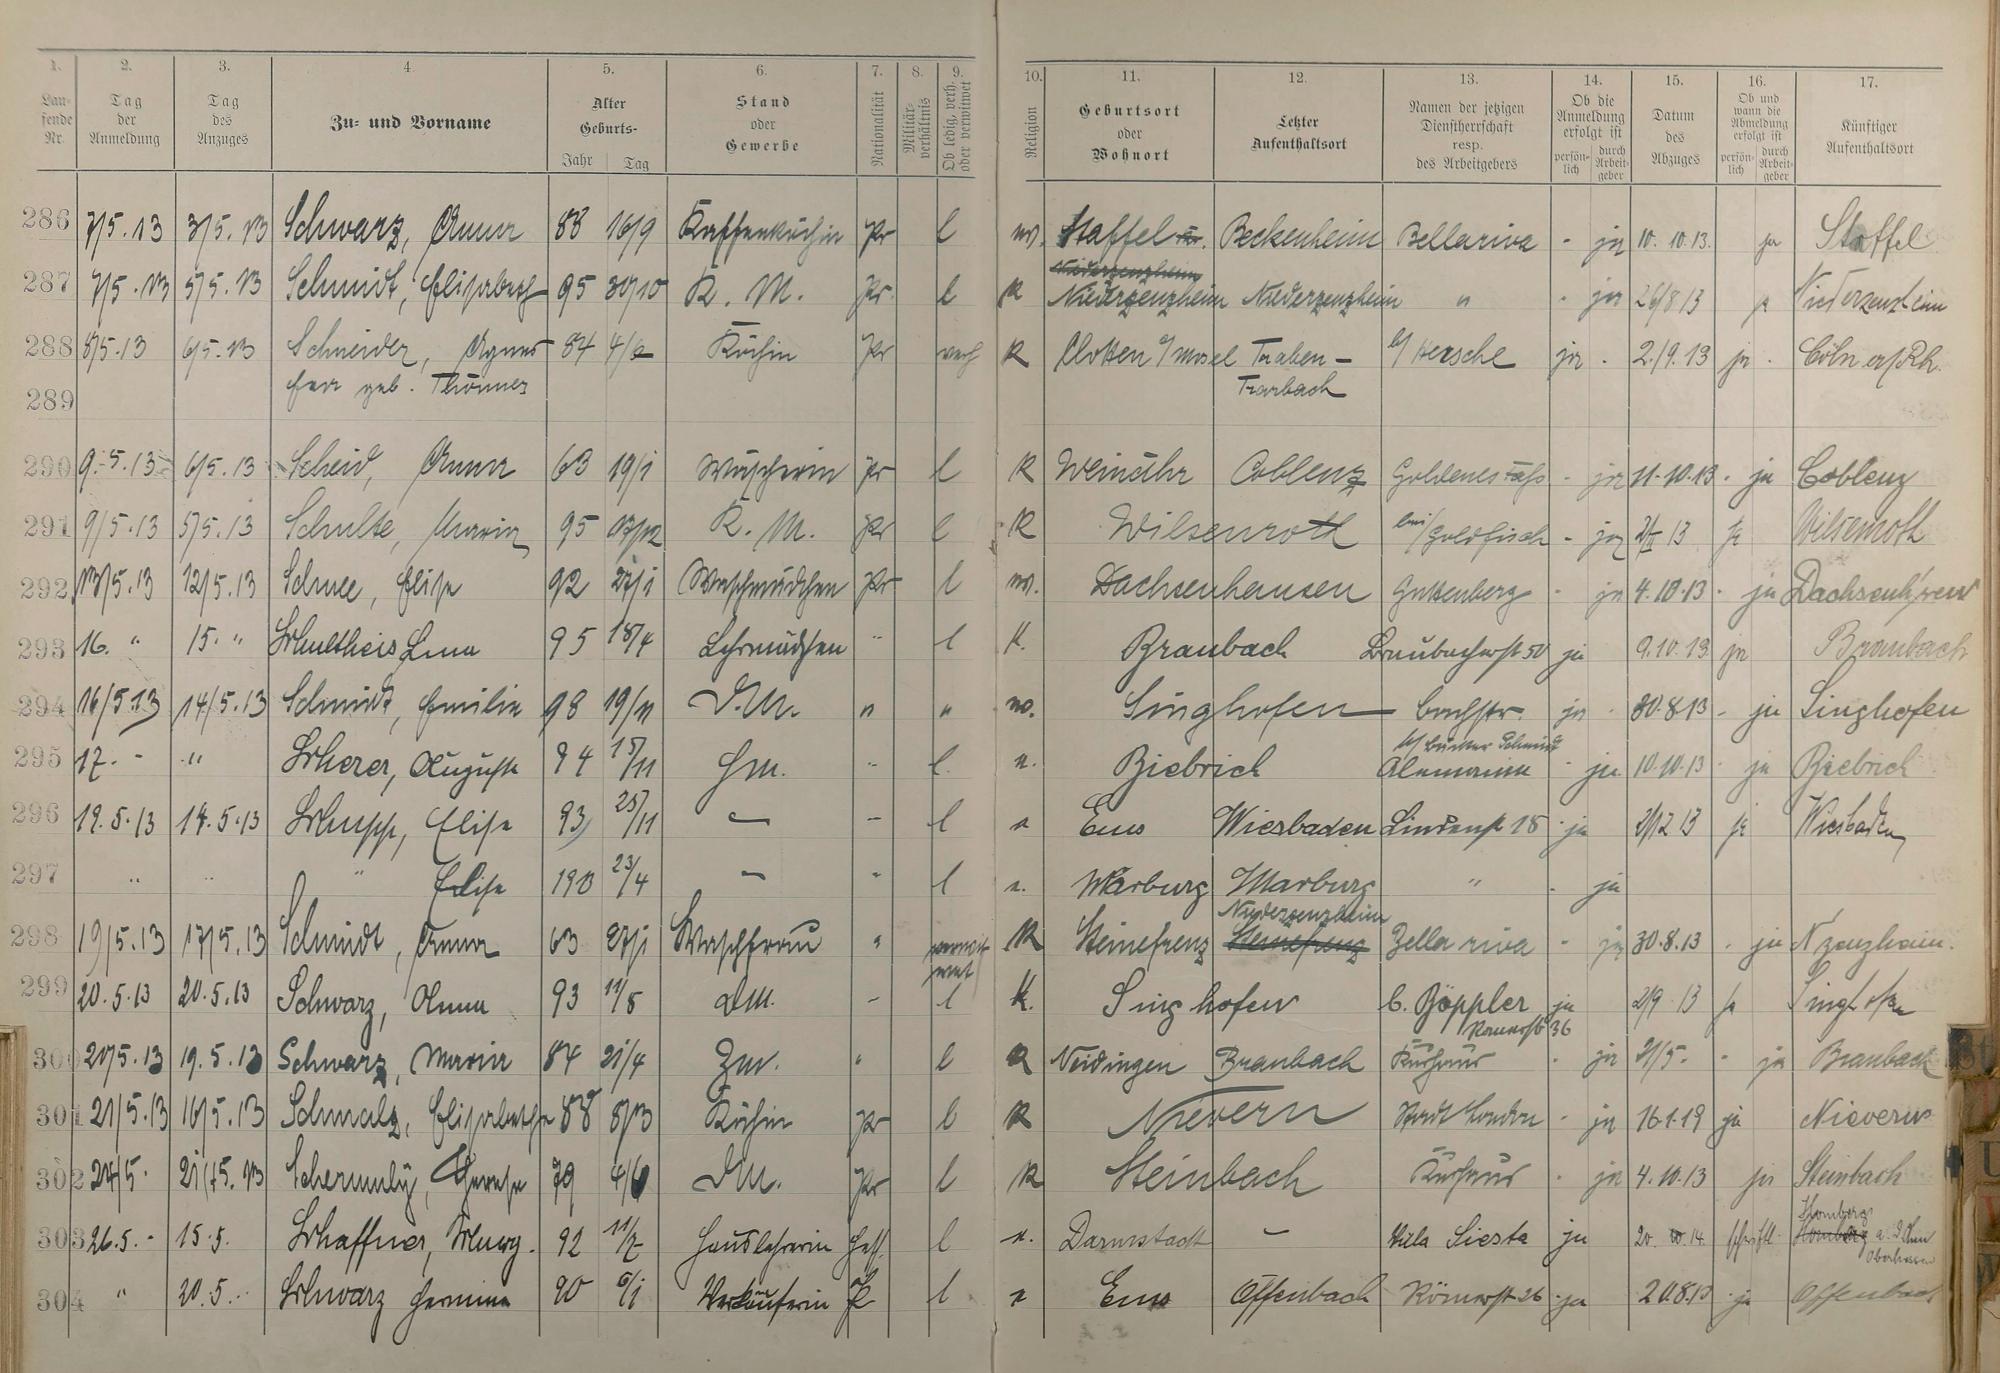 1. 2. 3. 4. 5. 6. 7. 8. 9. 10. 11. 12. 13. 14. 15. 16. 17.
Laufende Nr. Tag der Anmeldung Tag des Anzuges Zu- und Vorname Alter Geburts- Jahr Tag Stand oder Gewerbe Nationalität Militärverhältnis Ob ledig, verh. oder verwitwet Religion Geburtsort oder Wohnort Letzter Aufenthaltsort Namen der jetzigen Dienstherrschaft resp. des Arbeitgebers Ob die Anmeldung erfolgt ist persönlich durch Arbeitgeber Datum des Abzuges Ob und wann die Abmeldung erfolgt ist persönlich durch Arbeitgeber Künftiger Aufenthaltsort
286 7/5.13 3/5.13 Schwarz, Anna 88 16/9 Kaffeeköchin Pr l Staffel Beckenheim Bellariva - ja 10.10.13. ja Staffel
Niederzenzheim
287 7/5.13 5/5.13 Schmidt, Elisabeth 95 30/10 K. M. Pr. l K Niederzenzheim Niederzenzheim " - ja 26/8 13 Niederzenzheim
288 8/5.13 6/5.13 Schneider, Agnes 84 Köchin Pr verh K Clotten a/Mosel Traben- b/ Hersche ja - 2./9.13 ja - Cöln a/Rh.
Frau geb. Thönnes Trarbach
289
290 9.5.13 6/5.13 Scheid, Anna 63 19/1 Wäscherin Pr l K Weinähr Coblenz Goldenes Fass - ja 11.10.13 - ja Coblenz
291 9/5.13 5/5.13 Schulte, Maria 95 K. M. Pr l K Wilsenroth bei/ Goldfisch - ja 13 ja Wilsenroth
292 13/5.13 12/5.13 Schnee, Elise 92 27/1 Waschmädchen Pr l Dachsenhausen Guttenberg - ja 4.10.13 - ja Dachsenh'sen
293 16. " 15. " Schultheis Lina 95 18/4 Lehrmädchen " l K. Braubach Braubacherst 50 ja 9.10.13 ja Braubach
294 16/5.13 14/5.13 Schmidt, Emilie 98 19/11 D.M. " " Singhofen Bachstr. ja - 30.8.13 - ja Singhofen
b/ Bäcker Schmidt
295 17. - " Scherer, Auguste 94 15/11 Hm. " l. Biebrich Alemannia - ja 10.10.13 - ja Biebrich
296 19.5.13 14.5.13 Schupp, Elise 93 25/11 — - l Ems Wiesbaden Lindenst 18 - ja 2/12 13 ja Wiesbaden
297 " " " Elise 190 23/4 — " l Marburg Marburg " - ja
Niederzenzheim
298 19/5.13 17/5.13 Schmidt, Anna 63 27/1 Waschfrau " verwit- K Steinefrenz Steinefrenz Bella riva - ja 30.8.13 - ja N'zenzheim.
wet
299 20.5.13 20.5.13 Schwarz, Anna 93 11/8 DM. - l K. Singhofen C. Böppler ja 2/9 13 ja Singhofen
Römerst 36
300 21/5.13 19.5.13 Schwarz, Maria 84 21/4 Zm. " l K Braubach Kurhaus - ja 21/5. - ja Braubach
301 21/5.13 16/5.13 Schmalz, Elisabetha 88 8/3 Köchin Pr l K Nievern Stadt London - ja 16.1.19 ja Nievern
302 24/5. 21/5.13 Therese 79 4/6 DM. Pr l K Steinbach Kurhaus - ja 4.10.13 ja Steinbach
Homberg
303 26.5.- 15.5. Schaffner, 92 11/2 Hauslehrerin Hess. l Darmstadt — Villa Siesta ja 20. 14. schriftl. Homberg a. Ohm
Oberhessen
304 " 20.5.- Schwarz Hermine 90 6/1 Verkäuferin Pr l Ems Offenbach Römerst 26 - ja 20.8.13 - ja Offenbach